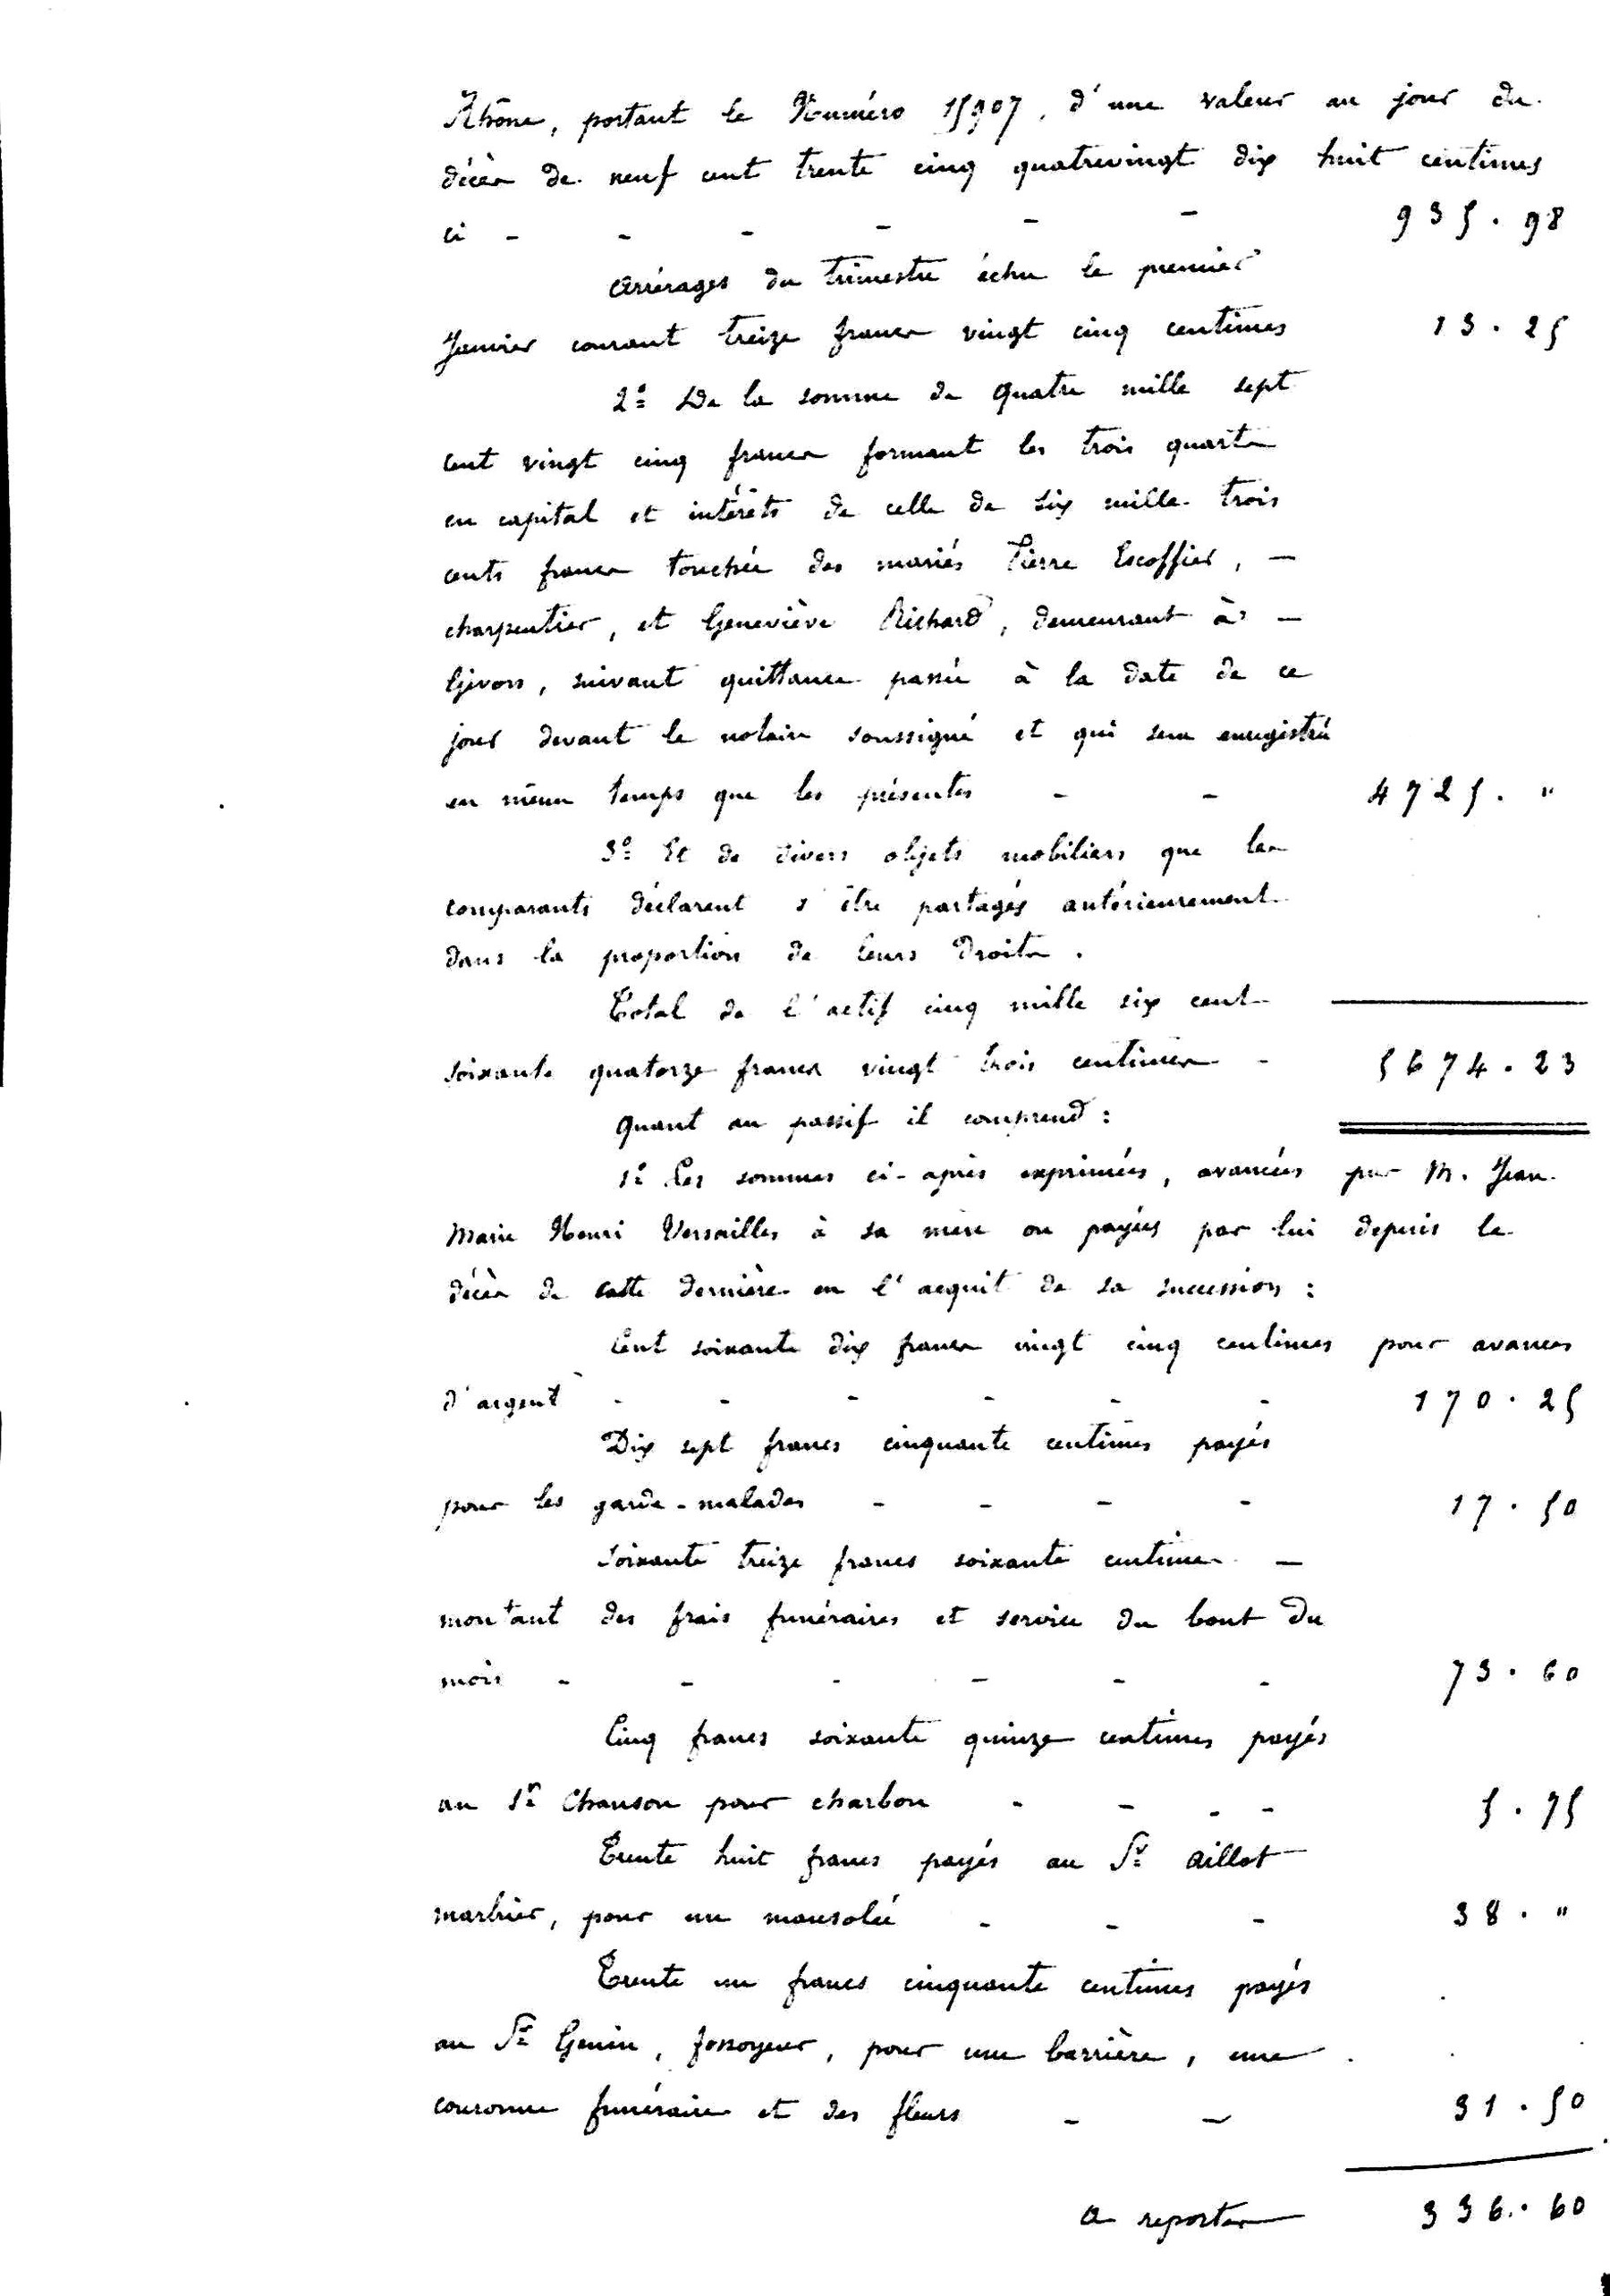 Rhône, portant le Numéro 15907, d'une valeur au jour du
décès de neuf cent trente cinq quatrevingt dix huit centimes
ci - - - - - - 935.98
Arrérages du trimestre échu le premier
Janvier courant treize francs vingt cinq centimes 13.25
2º De la somme de quatre mille sept
cent vingt cinq francs formant les trois quarts
en capital et intérêts de celle de six mille trois
cents francs touchée des mariés Pierre Escoffier, -
charpentier, et Geneviève Richard, demeurant à -
Givors, suivant quittance passée à la date de ce
jour devant le notaire soussigné et qui sera enregistrée
en même temps que les présentes - - 4725. "
3º Et de divers objets mobiliers que les
comparants déclarent s'être partagés antérieurement
dans la proportion de leurs droits.
Total de l'actif cinq mille six cent
soixante quatorze francs vingt trois centimes - 5674.23
Quant au passif il comprend :
1º Les sommes ci-après exprimées, avancées par M. Jean
Marie Henri Versailles à sa mère ou payées par lui depuis le
décès de cette dernière en l'acquit de sa succession :
Cent soixante dix francs vingt cinq centimes pour avances
d'argent - - - - - - 170.25
Dix sept francs cinquante centimes payés
pour les garde-malades - - - - 17.50
Soixante treize francs soixante centimes -
montant des frais funéraires et service du bout du
mois - - - - - - 73.60
Cinq francs soixante quinze centimes payés
au Sr Chanson pour charbon - - - - 5.75
Trente huit francs payés au Sr Aillot
marbrier, pour un mausolée - - - 38. "
Trente un francs cinquante centimes payés
au Sr Genin, fossoyeur, pour une barrière, une
couronne funéraire et des fleurs - - 31.50
A reporter 336.60